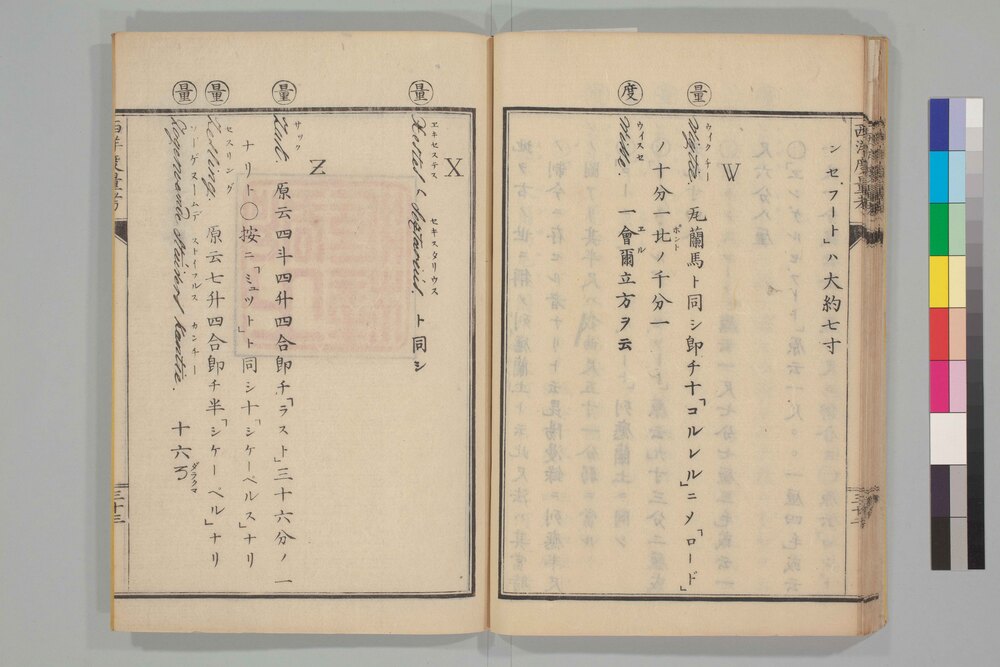 シセフート」ハ大約七寸
W
量
ウイクチー
Wigtie 瓦蘭馬ト同シ即チ十「コルレル」ニメ「ロード」
ポント
ノ十分一比ノ千分一
度
ウイスセ
エル
Wisse 一會爾立方ヲ云
X
量
エキセステス
セキスタリウス
ト同シ
Z
量
サック
Zak. 原云四斗四升四合即チ「ラスト」三十六分ノ一
ナリト〇按ニ「ミュツト」ト同シ十「シケーペルス」ナリ
量
セスリング
Zesling. 原云七升四合即チ半「シケーペル」ナリ
量
ストイフルス
カンチー
ダラクマ
十六
西洋度量考
三十二
三十三